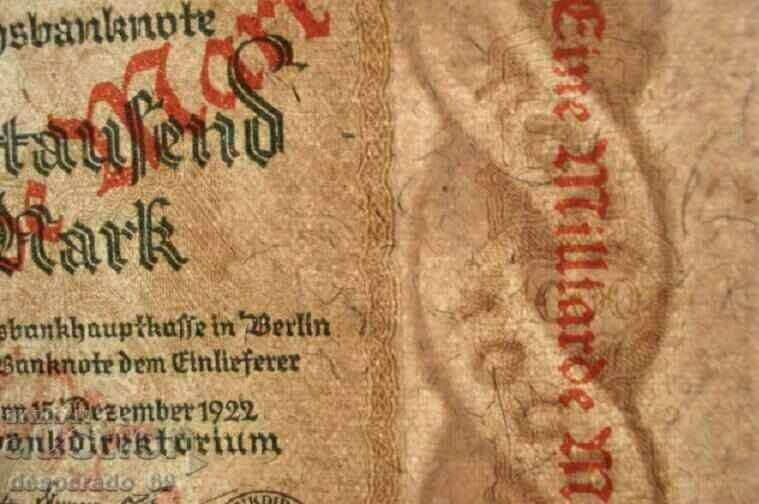 hsbanknote
tausend
Mark
sbankhauptkasse in Berlin
Banknote dem Einlieferer
15. Dezember 1922
bankdirektorium
Mark
Eine Milliarde M
desperado_69